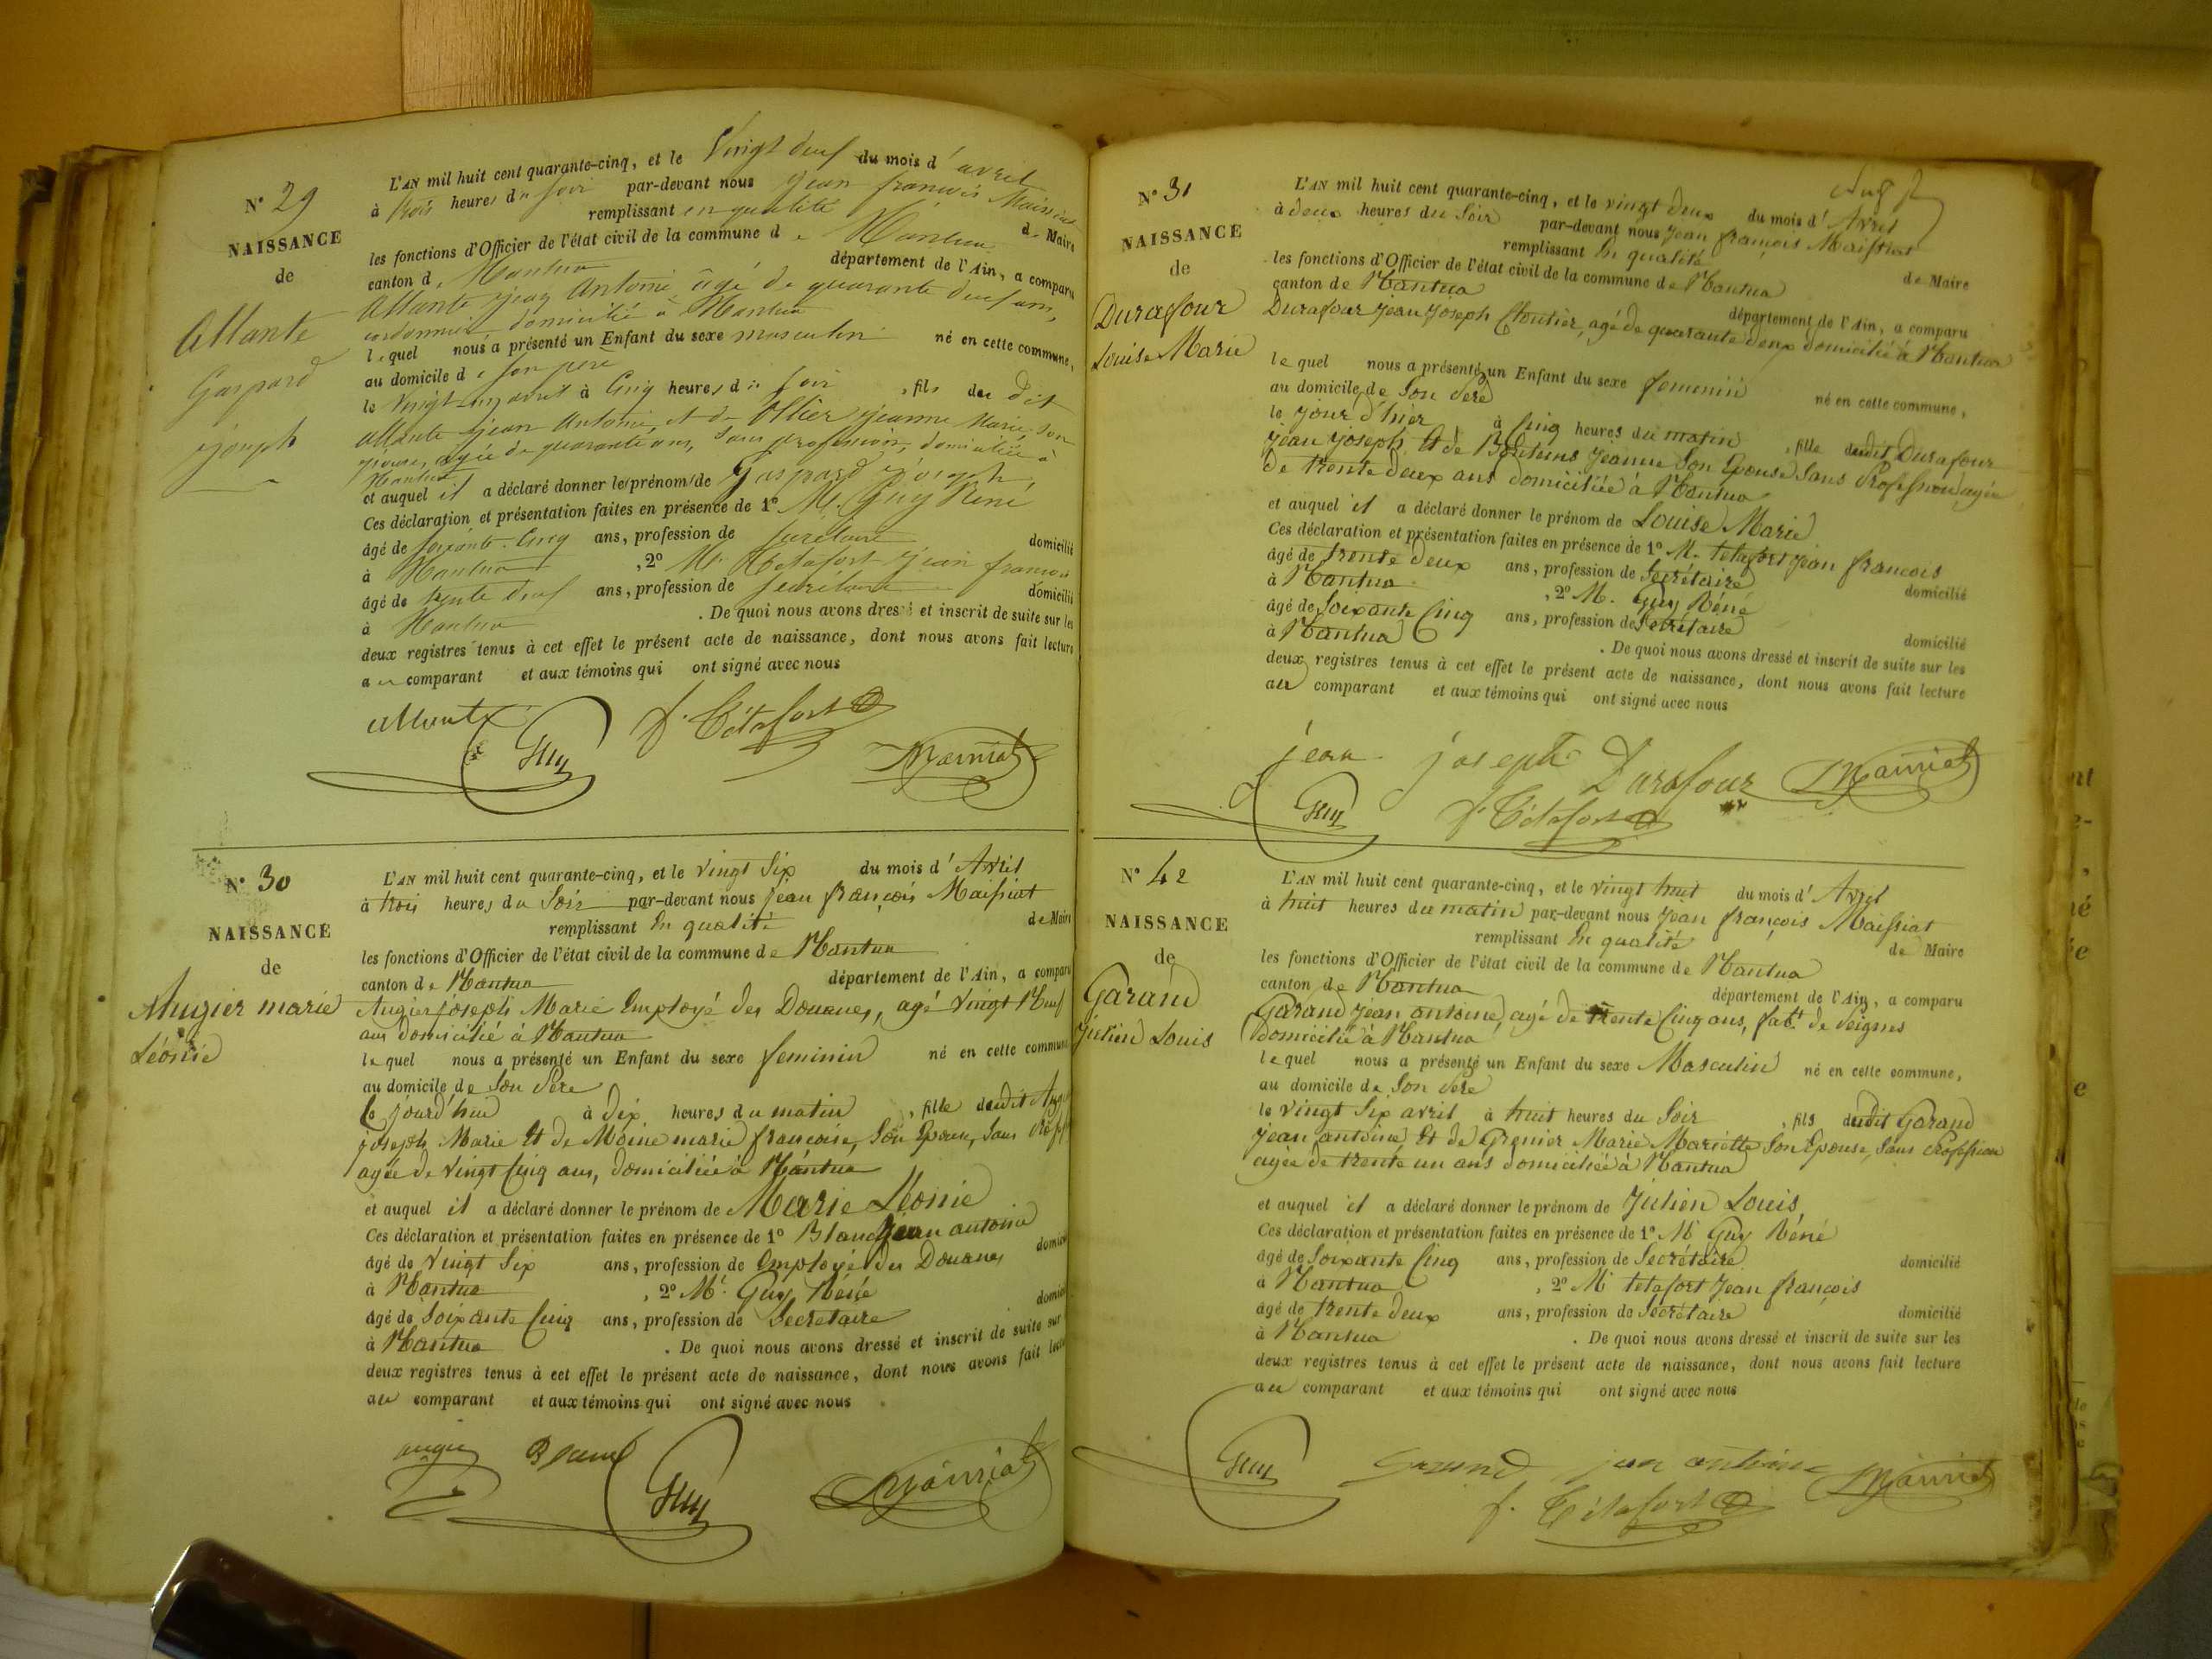 N° 29
NAISSANCE
de
Allante
Gaspard
joseph
L'AN mil huit cent quarante-cinq, et le Vingt deux du mois d'avril
à trois heures du soir par-devant nous jean francois Maissiat
remplissant en qualité de Maire
les fonctions d'Officier de l'état civil de la commune de Nantua
canton de Nantua département de l'Ain, a comparu
Allante jean Antoine âgé de quarante deux ans,
cordonnier domicilié à Nantua
lequel nous a présenté un Enfant du sexe masculin né en cette commune,
au domicile de son père
le Vingt-un avril à Cinq heures du soir, fils du dit
Allante jean Antoine, et de Ollier jeanne Marie, son
épouse, agée de quarante ans, sans profession, domiciliée à
Nantua
et auquel il a déclaré donner le prénom de Gaspard joseph
Ces déclaration et présentation faites en présence de 1° M. Guy René
âgé de soixante-Cinq ans, profession de secrétaire domicilié
à Nantua, 2° M. Tétafort jean francois
âgé de trente deux ans, profession de secrétaire domicilié
à Nantua. De quoi nous avons dressé et inscrit de suite sur les
deux registres tenus à cet effet le présent acte de naissance, dont nous avons fait lecture
au comparant et aux témoins qui ont signé avec nous
allante Guy f. Tétafort Maissiat
N° 30
NAISSANCE
de
Augier marie
Léonie
L'AN mil huit cent quarante-cinq, et le vingt Six du mois d'Avril
à trois heures du Soir par-devant nous jean françois Maissiat
remplissant En qualité de Maire
les fonctions d'Officier de l'état civil de la commune de Nantua
canton de Nantua département de l'Ain, a comparu
Augier joseph Marie Employé des Douanes, agé vingt Neuf
ans domicilié à Nantua
lequel nous a présenté un Enfant du sexe feminin né en cette commune
au domicile de Son Père
le jourd'hui à dix heures du matin, fille dudit Augier
joseph Marie Et de Moine marie francoise, Son Epouse, Sans Profession
agée de vingt Cinq ans, domiciliée à Nantua
et auquel il a déclaré donner le prénom de Marie Léonie
Ces déclaration et présentation faites en présence de 1° Blanc jean antoine
âgé de vingt Six ans, profession de Employé des Douanes domicilié
à Nantua, 2° M. Guy Réné
âgé de Soixante Cinq ans, profession de Secretaire domicilié
à Nantua. De quoi nous avons dressé et inscrit de suite sur
deux registres tenus à cet effet le présent acte de naissance, dont nous avons fait lecture
au comparant et aux témoins qui ont signé avec nous
augier Blanc Guy Maissiat
N° 31
NAISSANCE
de
Durafour
Louise Marie
L'AN mil huit cent quarante-cinq, et le vingt deux du mois d'Avril
à deux heures du Soir par-devant nous jean françois Maissiat
remplissant En qualité de Maire
les fonctions d'Officier de l'état civil de la commune de Nantua
canton de Nantua département de l'Ain, a comparu
Durafour jean joseph Cloutier, agé de quarante deux domicilié à Nantua
lequel nous a présenté un Enfant du sexe feminin né en cette commune,
au domicile de Son Père
le jour d'hier à Cinq heures du matin, fille dudit Durafour
jean joseph Et de jeanne Son Epouse, Sans Profession agée
de trente deux ans domiciliée à Nantua
et auquel il a déclaré donner le prénom de Louise Marie
Ces déclaration et présentation faites en présence de 1° M. tetafort jean francois
âgé de trente deux ans, profession de Secrétaire domicilié
à Nantua, 2° M. Guy Réné
âgé de Soixante Cinq ans, profession de Secrétaire domicilié
à Nantua. De quoi nous avons dressé et inscrit de suite sur les
deux registres tenus à cet effet le présent acte de naissance, dont nous avons fait lecture
au comparant et aux témoins qui ont signé avec nous
jean joseph Durafour Maissiat
Guy f. Tétafort
N° 42
NAISSANCE
de
Garand
julien Louis
L'AN mil huit cent quarante-cinq, et le vingt huit du mois d'Avril
à huit heures du matin par-devant nous jean françois Maissiat
remplissant En qualité de Maire
les fonctions d'Officier de l'état civil de la commune de Nantua
canton de Nantua département de l'Ain, a comparu
Garand jean antoine, agé de trente Cinq ans, fabt. de Peignes
domicilié à Nantua
lequel nous a présenté un Enfant du sexe Masculin né en cette commune,
au domicile de Son Père
le vingt Six avril à huit heures du Soir, fils dudit Garand
jean antoine Et de Grenier Marie Mariette Son Epouse, Sans Profession
agée de trente un ans domiciliée à Nantua
et auquel il a déclaré donner le prénom de julien Louis,
Ces déclaration et présentation faites en présence de 1° M Guy Réné
âgé de Soixante Cinq ans, profession de Secrétaire domicilié
à Nantua, 2° M tetafort jean françois
âgé de trente deux ans, profession de Secrétaire domicilié
à Nantua. De quoi nous avons dressé et inscrit de suite sur les
deux registres tenus à cet effet le présent acte de naissance, dont nous avons fait lecture
au comparant et aux témoins qui ont signé avec nous
Guy Garand jean antoine Maissiat
f. Tétafort